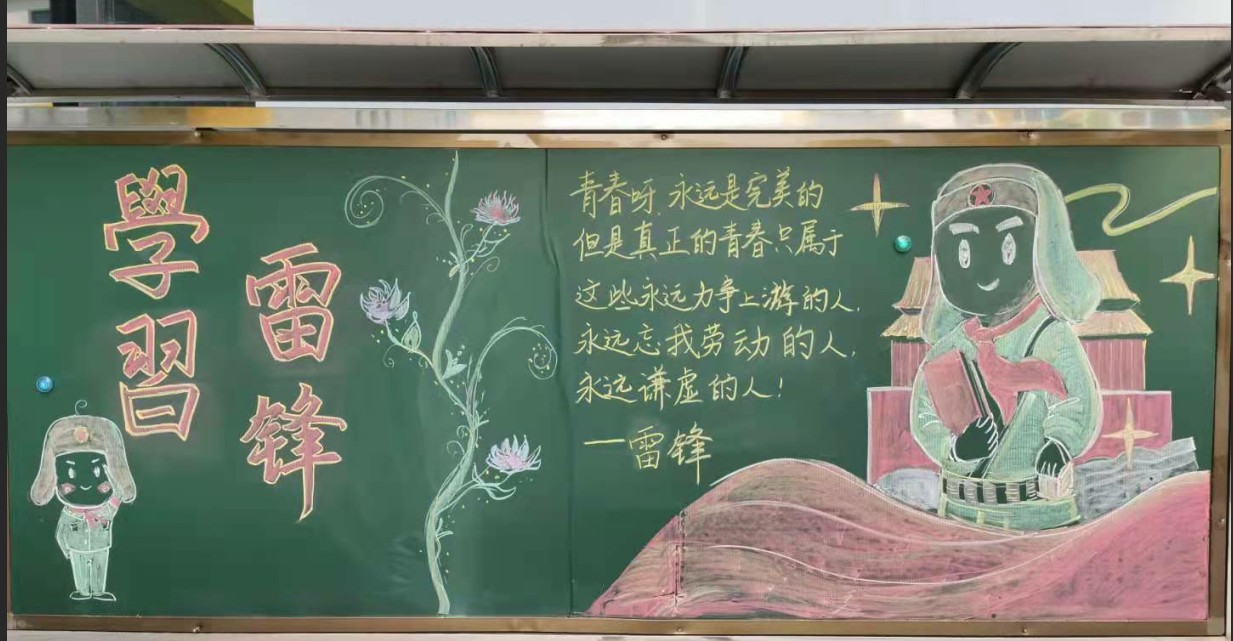 學習
雷锋
青春呀 永远是完美的
但是真正的青春只属于
这些永远力争上游的人,
永远忘我劳动的人,
永远谦虚的人!
—雷锋